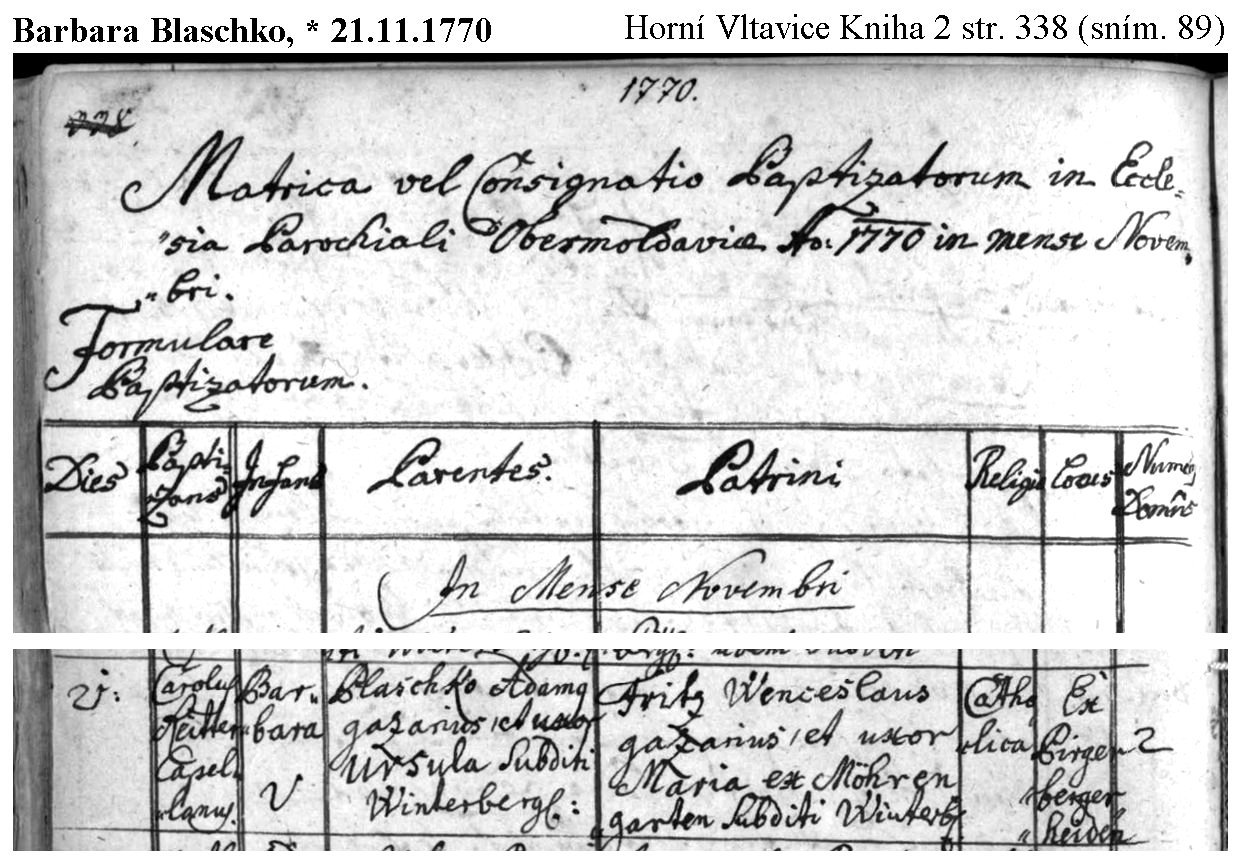 Barbara Blaschko, * 21.11.1770
Horní Vltavice Kniha 2 str. 338 (sním. 89)
1770.
Matrica vel Consignatio Baptizatorum in Eccle=
"sia Parochiali Obermoldaviæ Ao: 1770 in mense Novem
"bri.
Formulare
Baptizatorum.
Dies
Bapti=
zans
Infans
Parentes.
Patrini
Religio
Locus
Numerus
Domûs
In Mense Novembri
21:
Carolus
Reitter
Capel=
"lanus.
Bar=
bara
Blaschko Adamq
gazarius, et uxor
Ursula Subditi
Winterbergl:
Fritz Wenceslaus
gazarius, et uxor
Maria ex Möhren
garten Subditi Winterb:
Catho
"lica
Ex
Birgen
berger
heiden
2